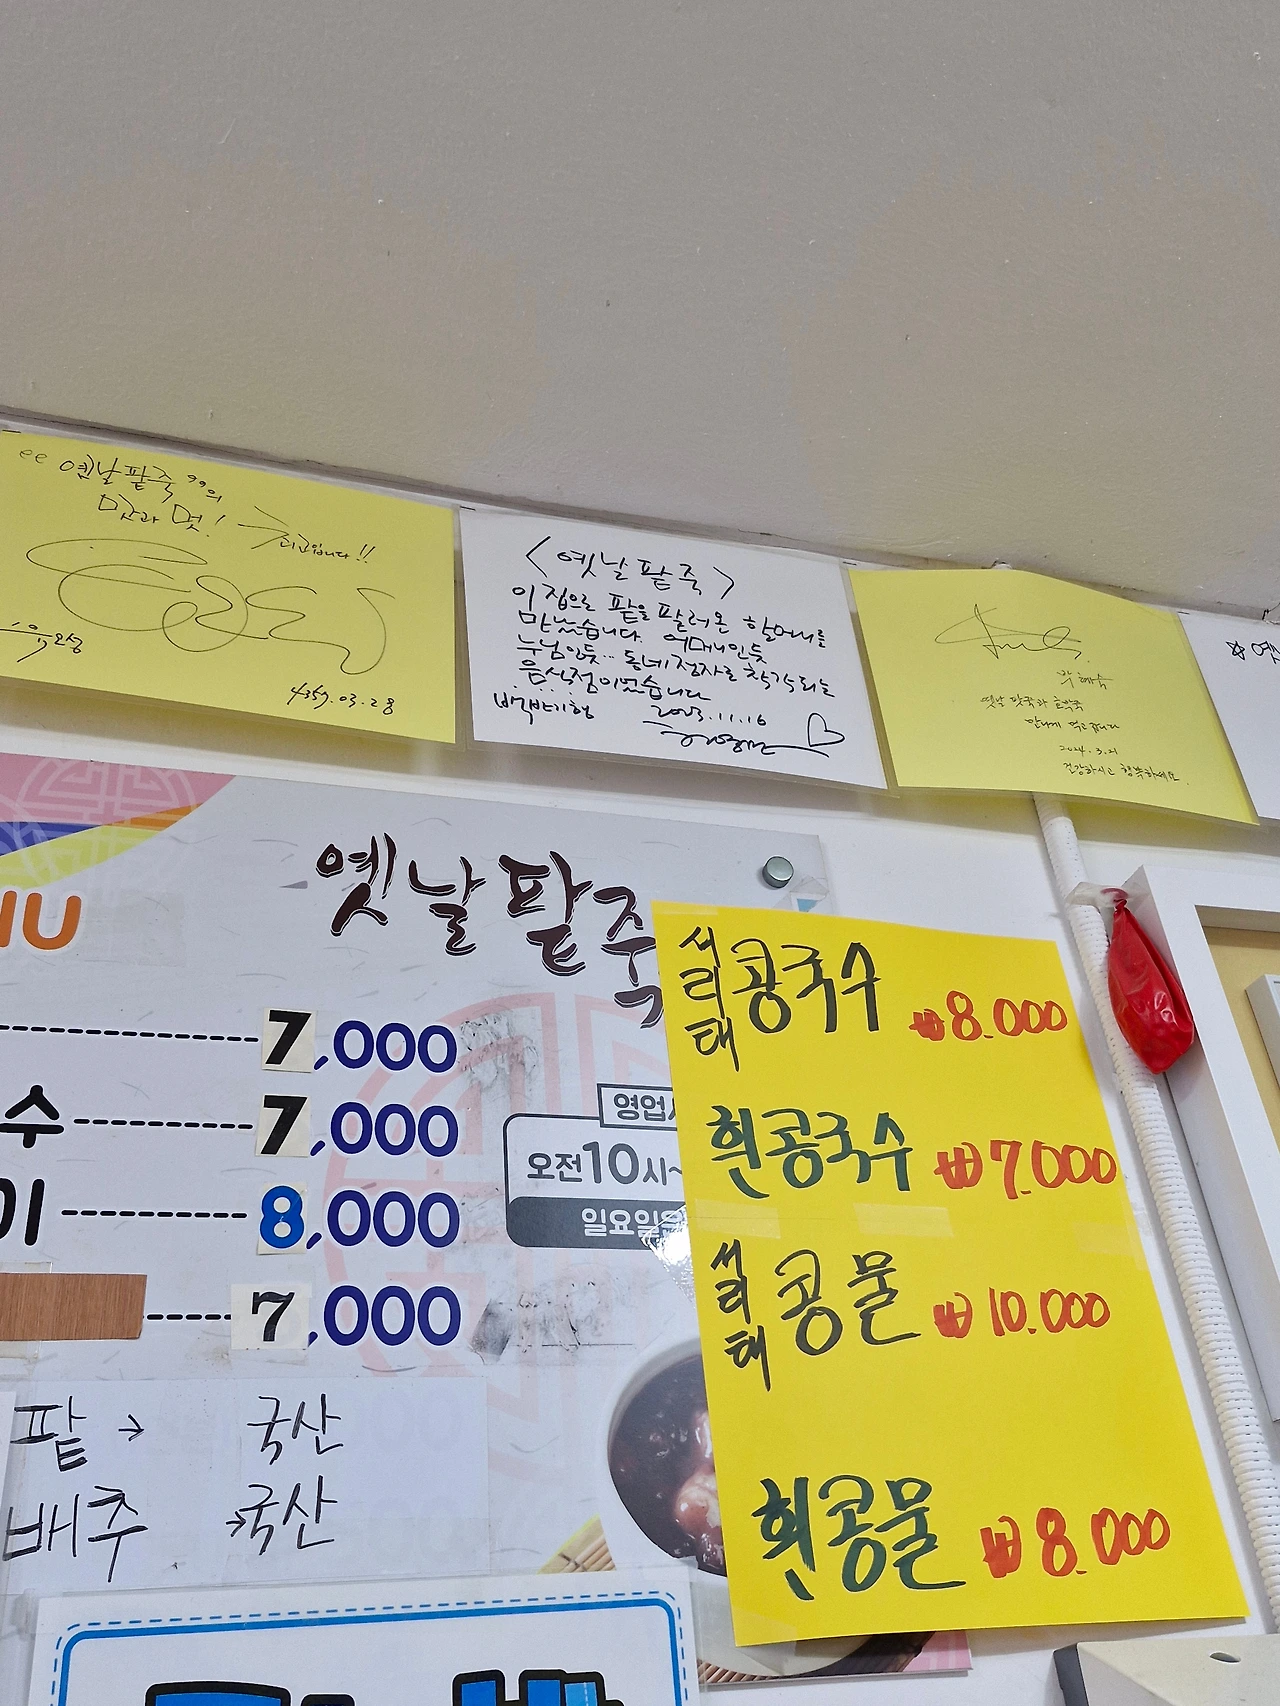 옛날팥죽 의
맛과 멋!
최고입니다!!
4357.03.28
<옛날팥죽>
이집으로 팥을 팔러온 할머니를
만났습니다. 어머니인듯
누님인듯... 동네정자로 착각되는
음식점이었습니다
백반기행 2023.11.16
박혜숙
옛날 팟죽과 호박죽
맛나게 먹고 갑니다
2024.3.21
건강하시고 행복하세요.
NU
옛날팥죽
7,000
수 7,000
이 8,000
7,000
영업
오전10시~
일요일은
팥 → 국산
배추 → 국산
서리태 콩국수 ₩8.000
흰콩국수 ₩7.000
서리태 콩물 ₩10.000
흰콩물 ₩8.000